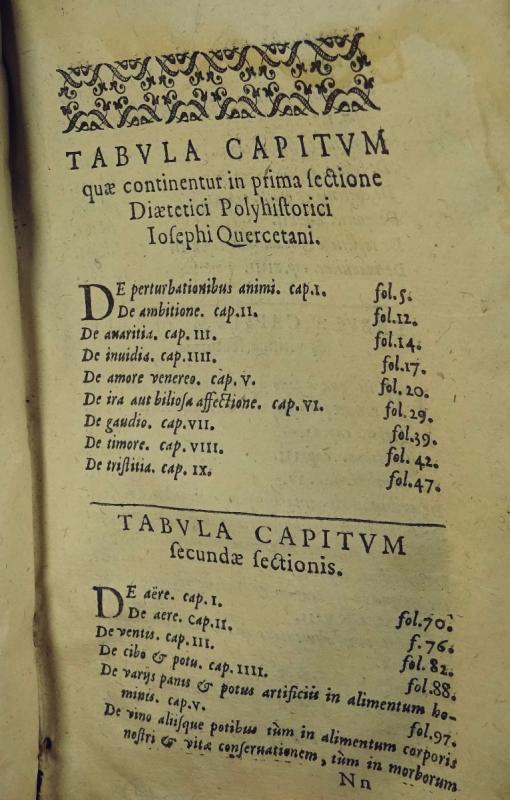 TABVLA CAPITVM
quæ continentur in prima ſectione
Diætetici Polyhiſtorici
Ioſephi Quercetani.
DE perturbationibus animi. cap.I. fol.5.
De ambitione. cap.II. fol.12.
De auaritia. cap. III. fol.14.
De inuidia. cap.IIII. fol.17.
De amore venereo. cap. V. fol. 20.
De ira aut bilioſa affectione. cap. VI. fol. 29.
De gaudio. cap.VII. fol.39.
De timore. cap. VIII. fol. 42.
De triſtitia. cap. IX. fol.47.
TABVLA CAPITVM
ſecundæ ſectionis.
DE aëre. cap. I. fol.70.
De aere. cap.II. f. 76.
De ventis. cap. III. fol. 82.
De cibo & potu. cap. IIII. fol.88.
De varijs panis & potus artificiis in alimentum ho-
minis. cap.V. fol.97.
De vino aliiſque potibus tùm in alimentum corporis
noſtri & vitæ conſeruationem, tùm in morborum
Nn